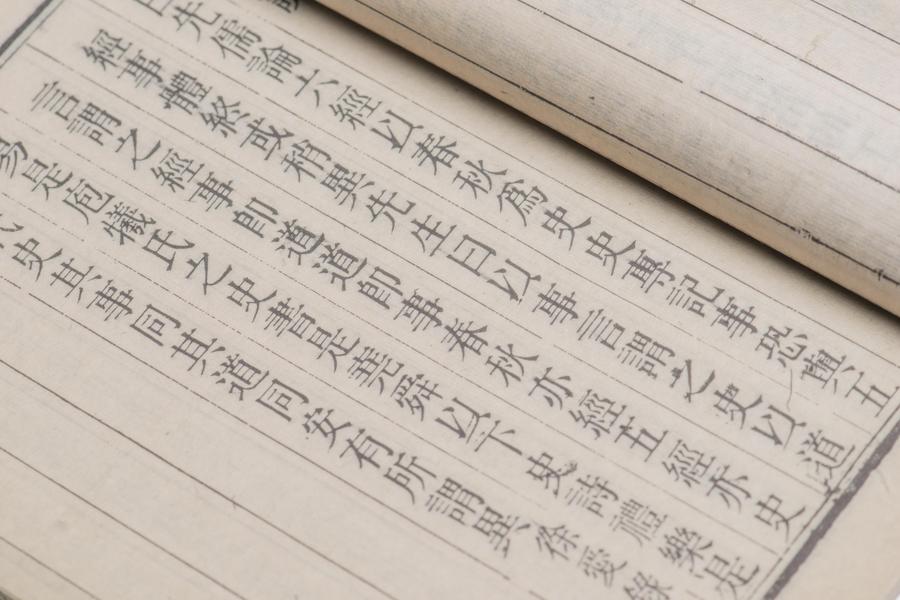 曰先儒論六經以春秋爲史史專記事恐與五
經事體終或稍異先生曰以事言謂之史以道
言謂之經事卽道道卽事春秋亦經五經亦史
易是庖犧氏之史書是堯舜以下史詩禮樂是
代史其事同其道同安有所謂異徐愛錄